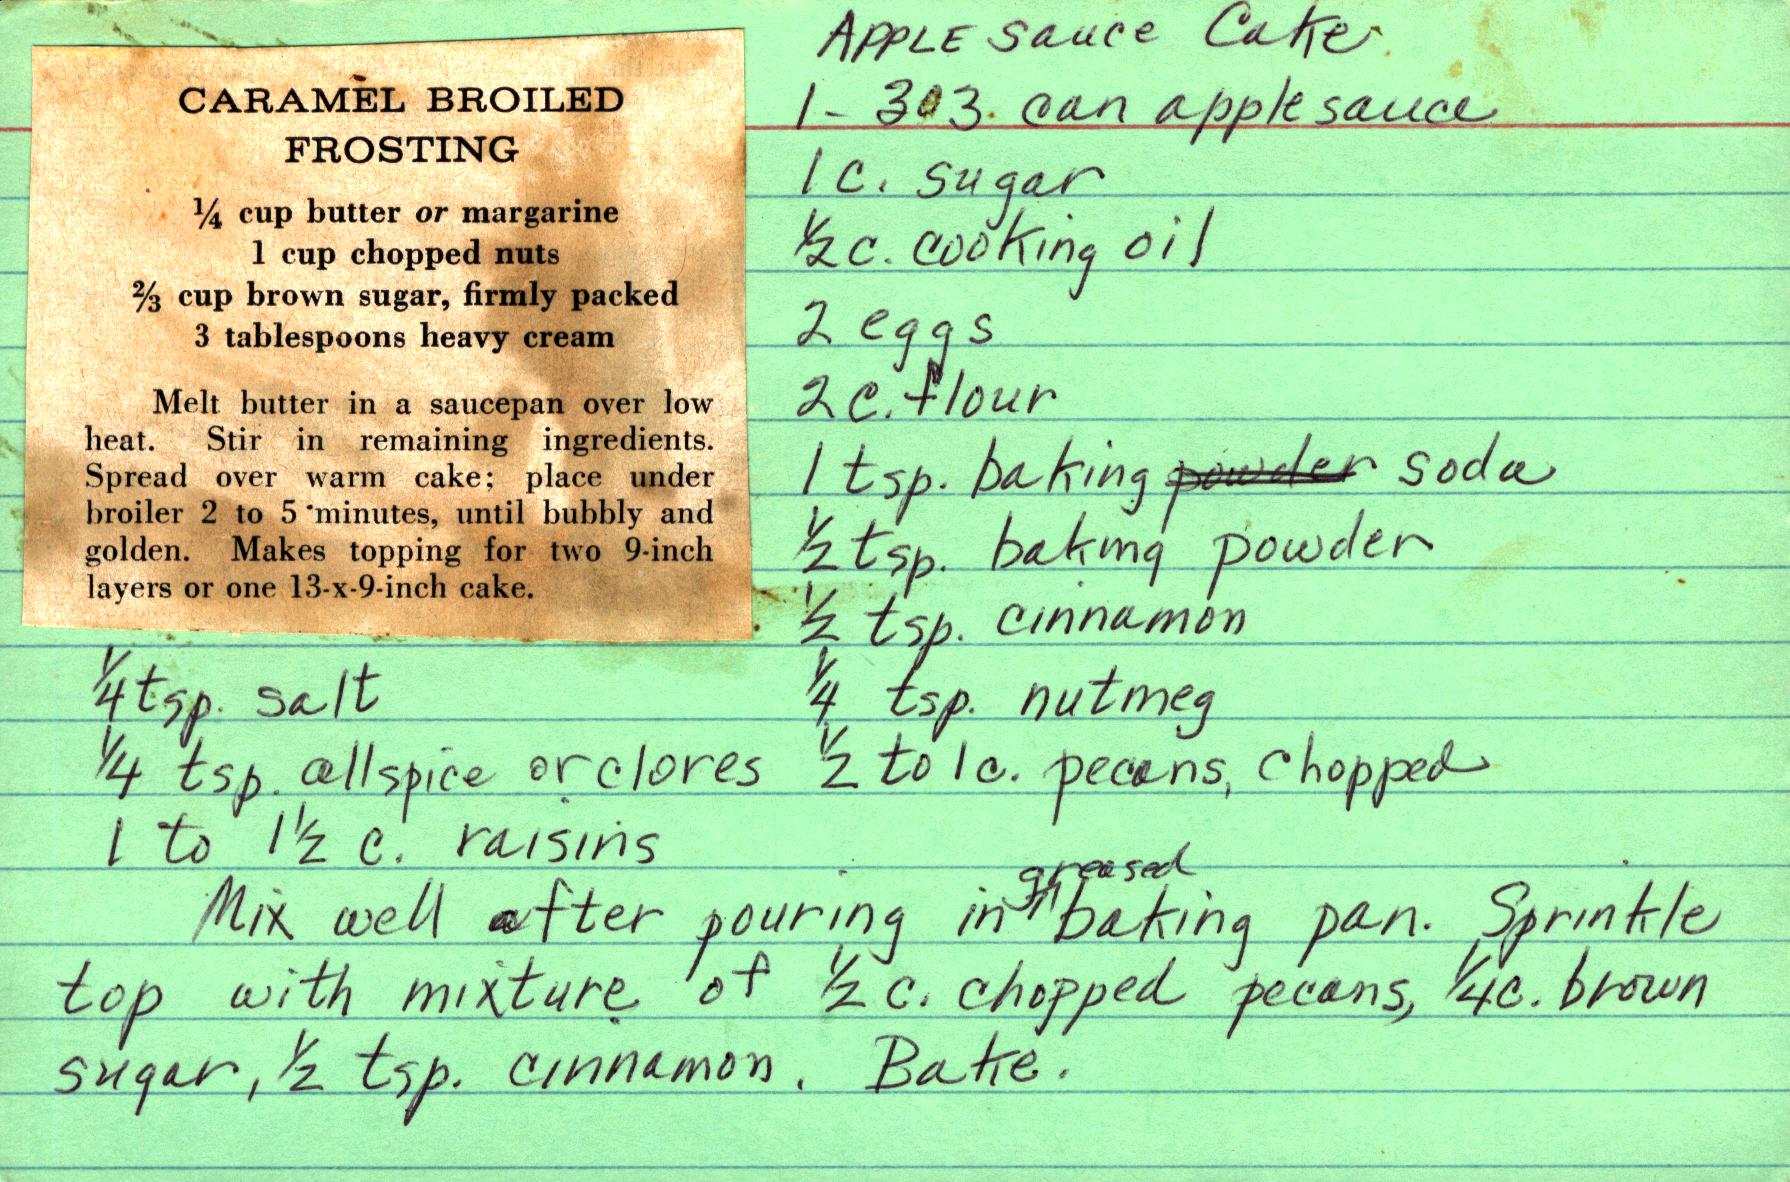 CARAMEL BROILED
FROSTING
¼ cup butter or margarine
1 cup chopped nuts
⅔ cup brown sugar, firmly packed
3 tablespoons heavy cream
Melt butter in a saucepan over low
heat. Stir in remaining ingredients.
Spread over warm cake; place under
broiler 2 to 5 minutes, until bubbly and
golden. Makes topping for two 9-inch
layers or one 13-x-9-inch cake.
APPLE sauce Cake
1 - 303 can applesauce
1 c. sugar
½ c. cooking oil
2 eggs
2 c. flour
1 tsp. baking powder soda
½ tsp. baking powder
½ tsp. cinnamon
¼ tsp. nutmeg
½ to 1 c. pecans, chopped
¼ tsp. salt
¼ tsp. allspice or cloves
1 to 1½ c. raisins
Mix well after pouring in greased baking pan. Sprinkle
top with mixture of ½ c. chopped pecans, ¼ c. brown
sugar, ½ tsp. cinnamon. Bake.